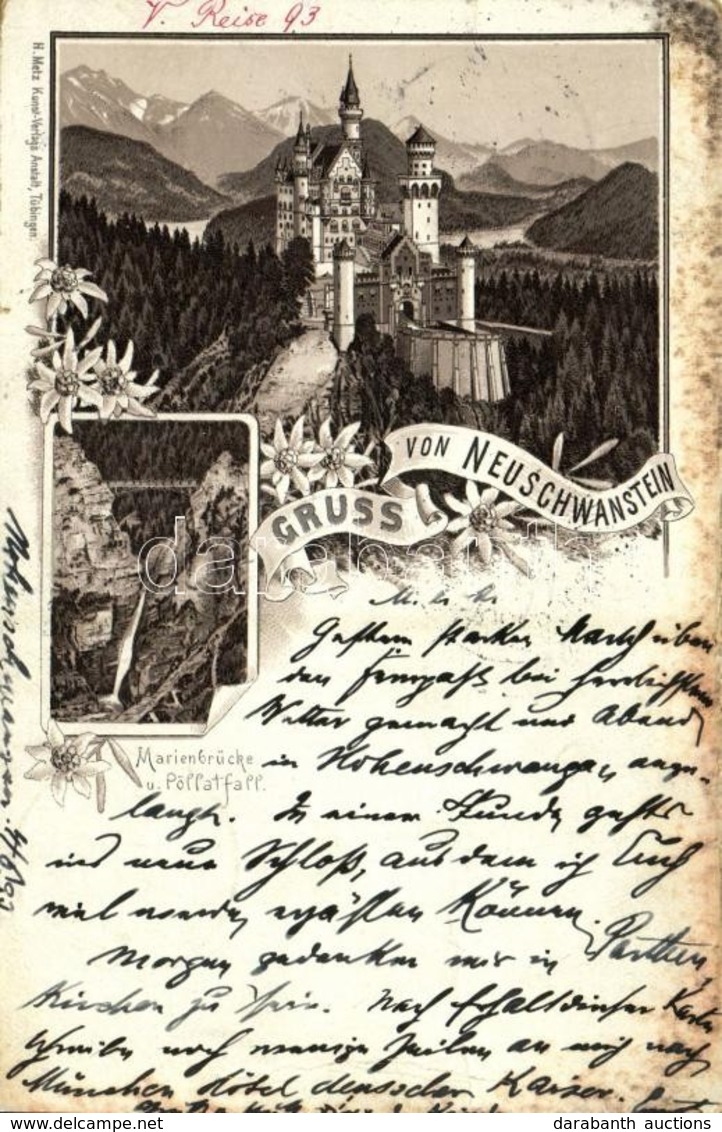 V. Reise 93
H. Metz Kunst-Verlags Anstalt, Tübingen.
GRUSS VON NEUSCHWANSTEIN
darabanth
Marienbrücke
u. Pöllatfall.
Gestern starken Marsch über
den Fernpaß bei herrlichstem
Wetter gemacht und Abend
in Hohenschwangau ange-
langt. In einer Stunde gehts
ins neue Schloß, aus dem ich Euch
viel werde erzählen können.
Morgen gedenken wir in Parthen-
Kirchen zu sein. Nach Erhalt dieser Karte
schreibe noch wenige Zeilen an mich nach
München Hôtel deutscher Kaiser.
Hohenschwangau
darabanth auctions